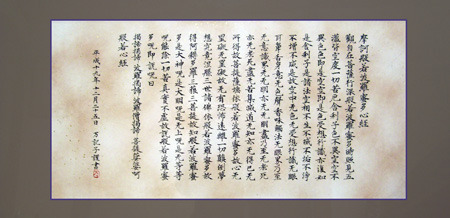 摩訶般若波羅蜜多心經
觀自在菩薩行深般若波羅蜜多時照見五
蘊皆空度一切苦厄舎利子色不異空空不
異色色即是空空即是色受想行識亦復如
是舎利子是諸法空相不生不滅不垢不浄
不増不減是故空中无色无受想行識无眼
耳鼻舌身意无色声香味觸法无眼界乃至
无意識界无无明亦无无明盡乃至无老死
亦无老死盡无苦集滅道无智亦无得以无
所得故菩提薩埵依般若波羅蜜多故心无
罣礙无罣礙故无有恐怖遠離一切顛倒夢
想究竟涅槃三世諸佛依般若波羅蜜多故
得阿耨多羅三藐三菩提故知般若波羅蜜
多是大神呪是大明呪是无上呪是无等等
呪能除一切苦真實不虚故説般若波羅蜜
多呪即説呪曰
揭諦揭諦 波羅揭諦 波羅僧揭諦 菩提薩婆呵
般若心經
平成十九年十二月二十五日 万記子謹書